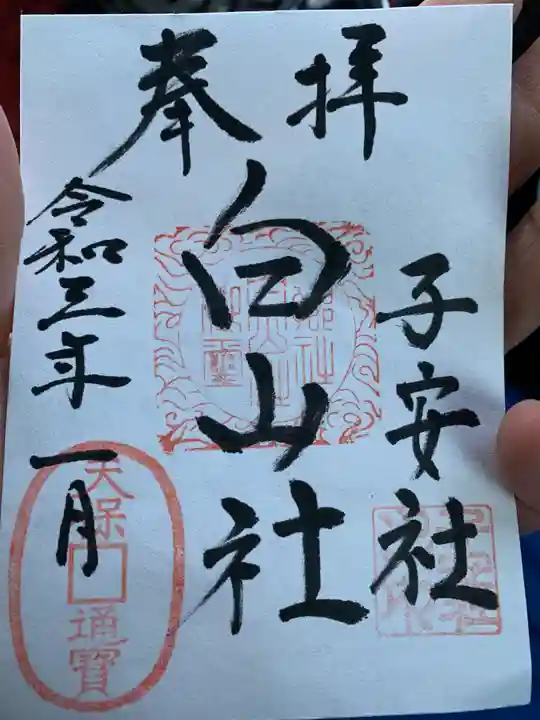 奉拝
子安社
白山社
令和三年一月
天保通寳